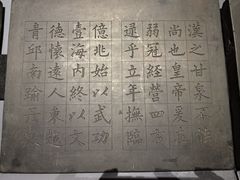 漢之甘泉不能
尚也皇帝爰在
弱冠經營四方
逮乎立年撫臨
億兆始以武功
壹海內終以文
德懷遠人東越
青邱南踰